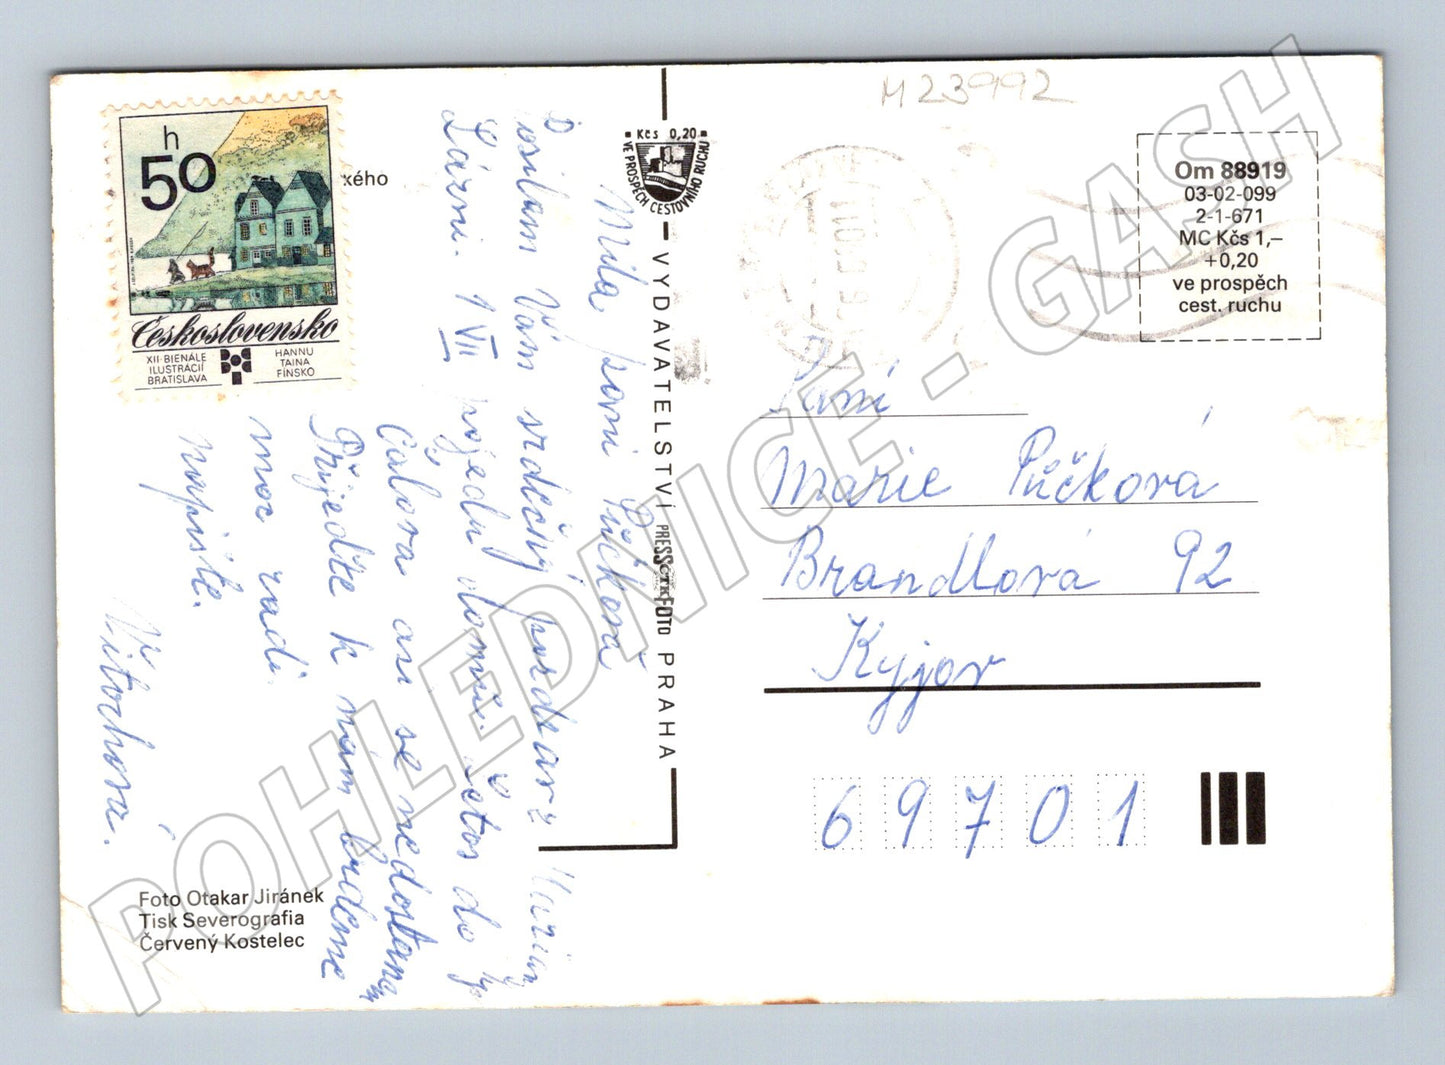 M23992
h
50
Československo
XII·BIENÁLE
ILUSTRÁCIÍ
BRATISLAVA
HANNU
TAINA
FÍNSKO
kého
Kčs 0,20
VE PROSPĚCH CESTOVNÍHO RUCHU
VYDAVATELSTVÍ PRESSFOTO PRAHA
Om 88919
03-02-099
2-1-671
MC Kčs 1,–
+0,20
ve prospěch
cest. ruchu
Milá paní Půčková
Posílám Vám srdečný pozdrav z
Lázní. 1 VII pojedu domu. Letos do
ani se nedostanem
Přijeďte k nám budeme
moc rádi.
napište.
Paní
Marie Půčková
Brandlová 92
Kyjov
69701
Foto Otakar Jiránek
Tisk Severografia
Červený Kostelec
POHLEDNICE - GASH